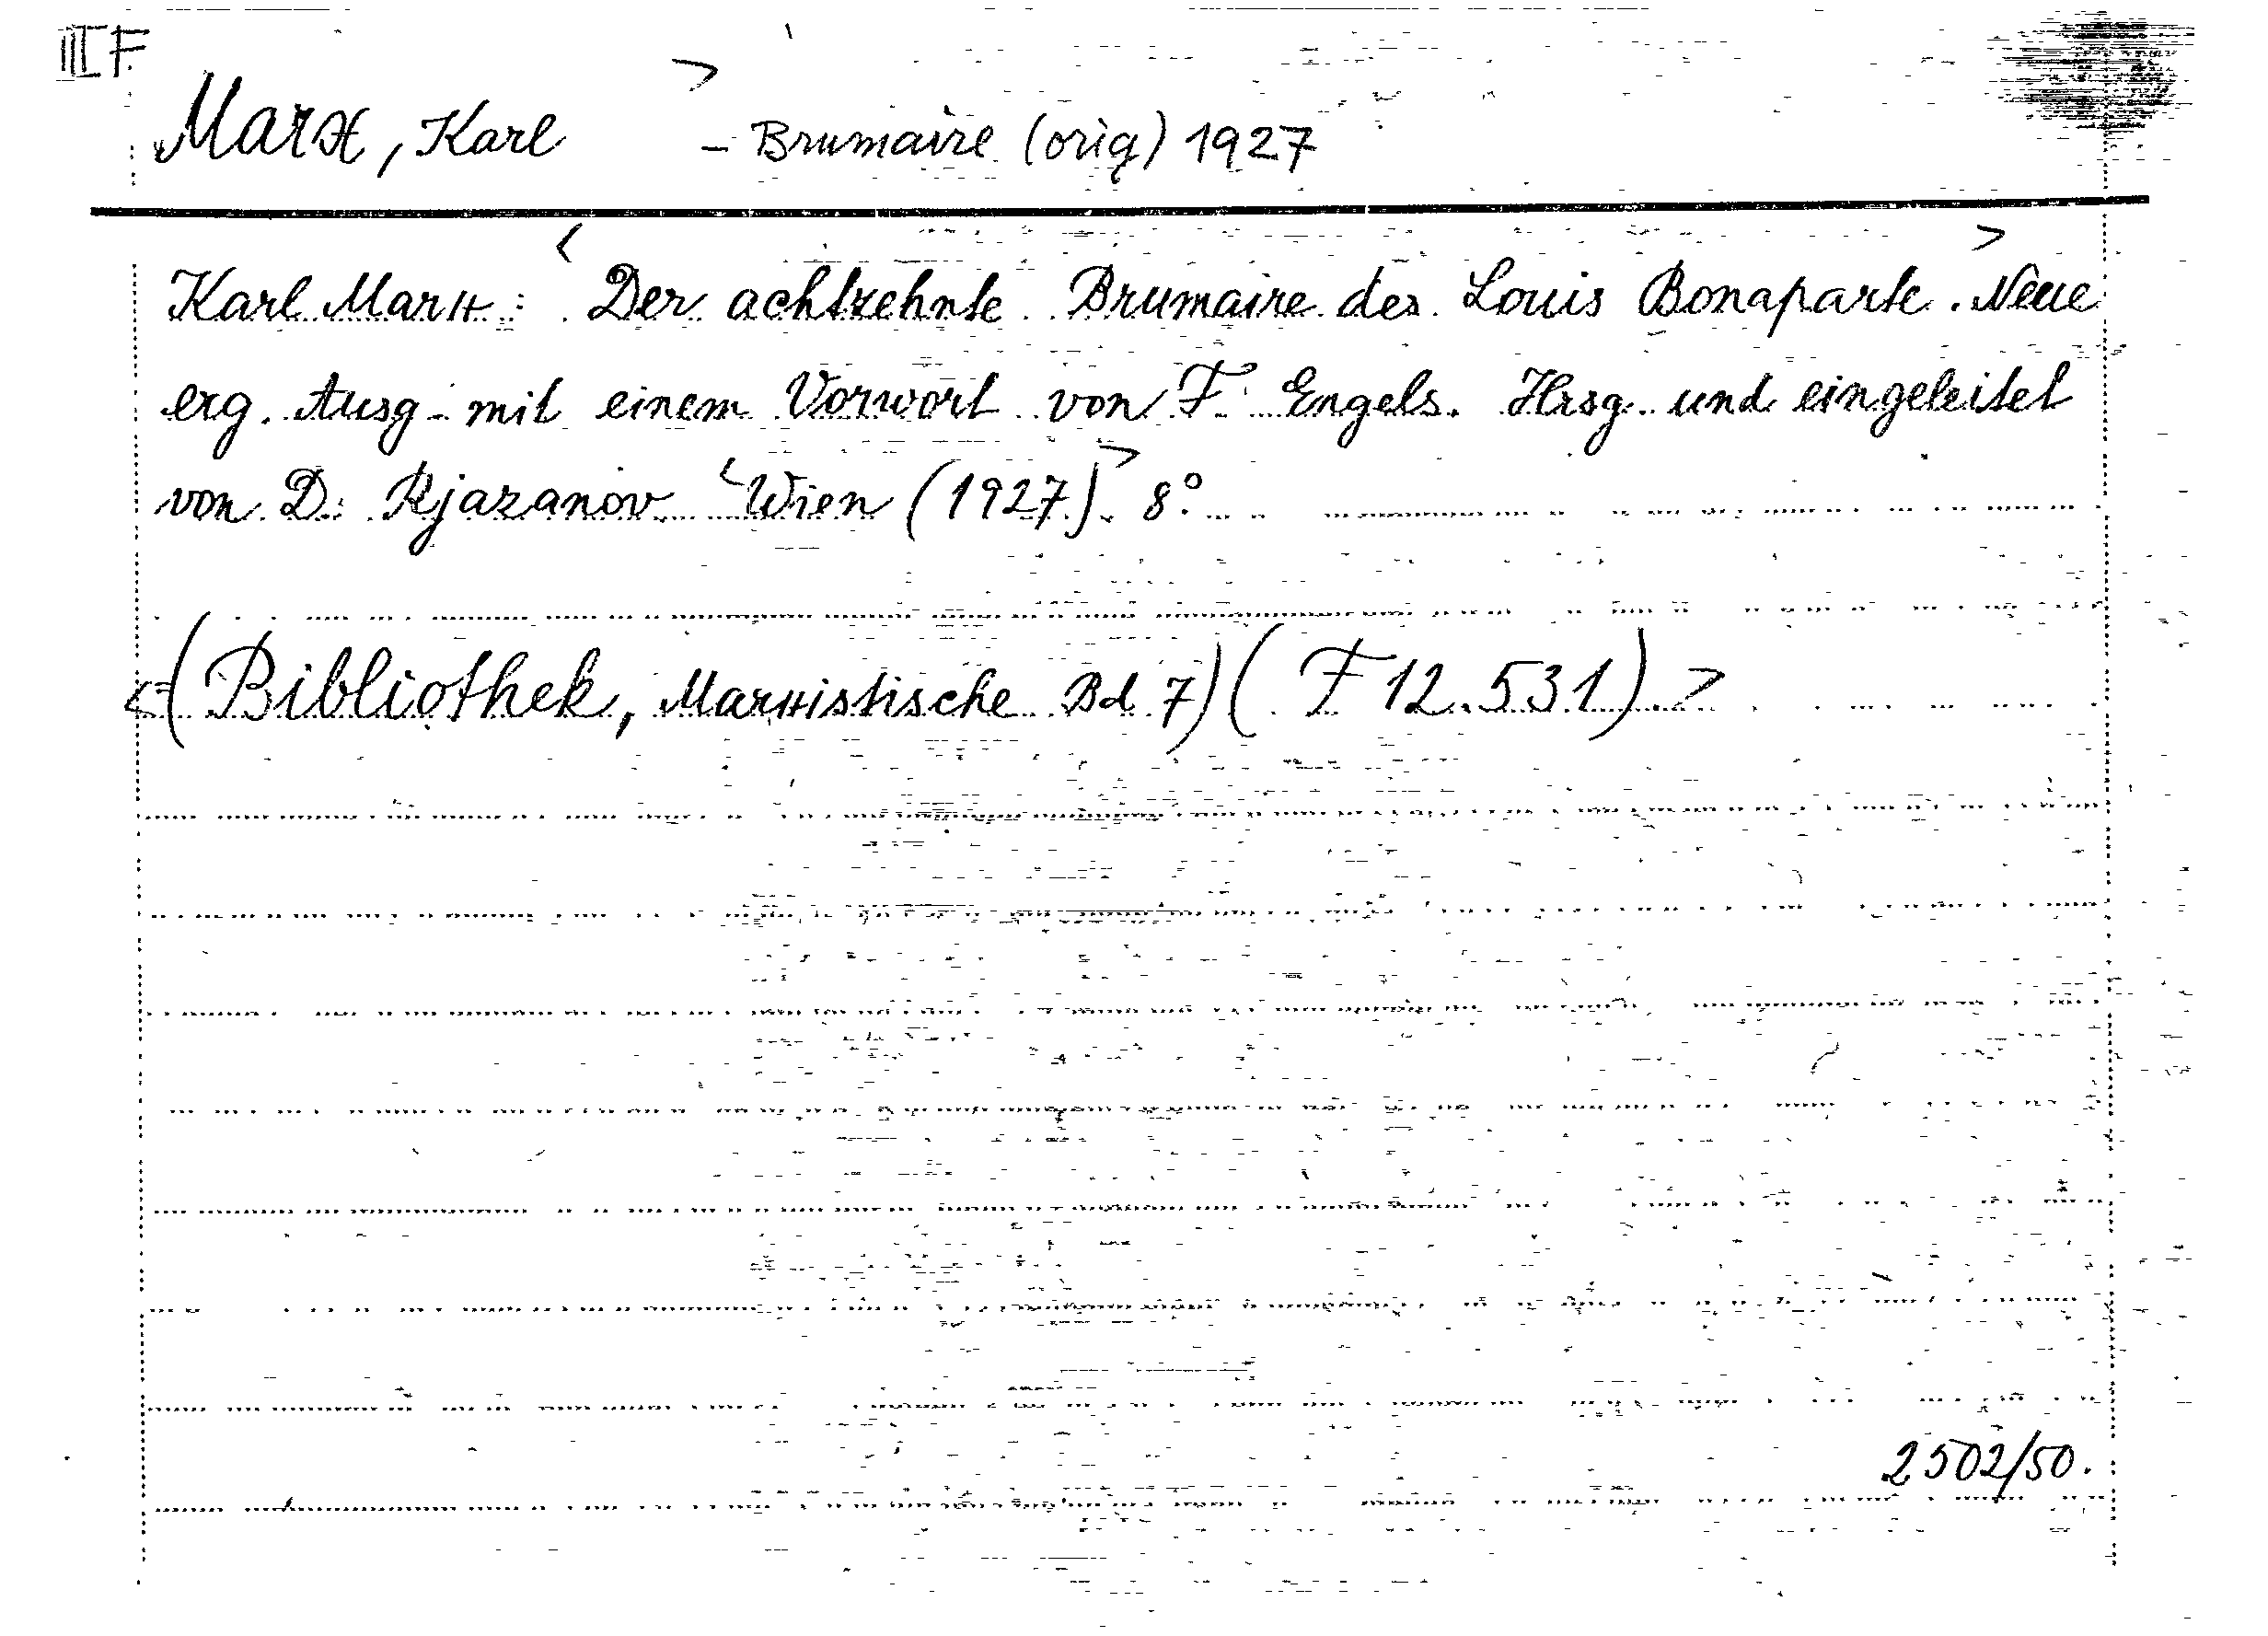 III F
Marx, Karl > – Brumaire (orig) 1927
Karl Marx: < Der achtzehnte Brumaire des Louis Bonaparte. > Neue
erg. Ausg. mit einem Vorwort von F. Engels. Hrsg. und eingeleitet
von D. Rjazanov < Wien (1927). > 8°.
<(Bibliothek, Marxistische Bd 7)(F 12.531).>
2502/50.